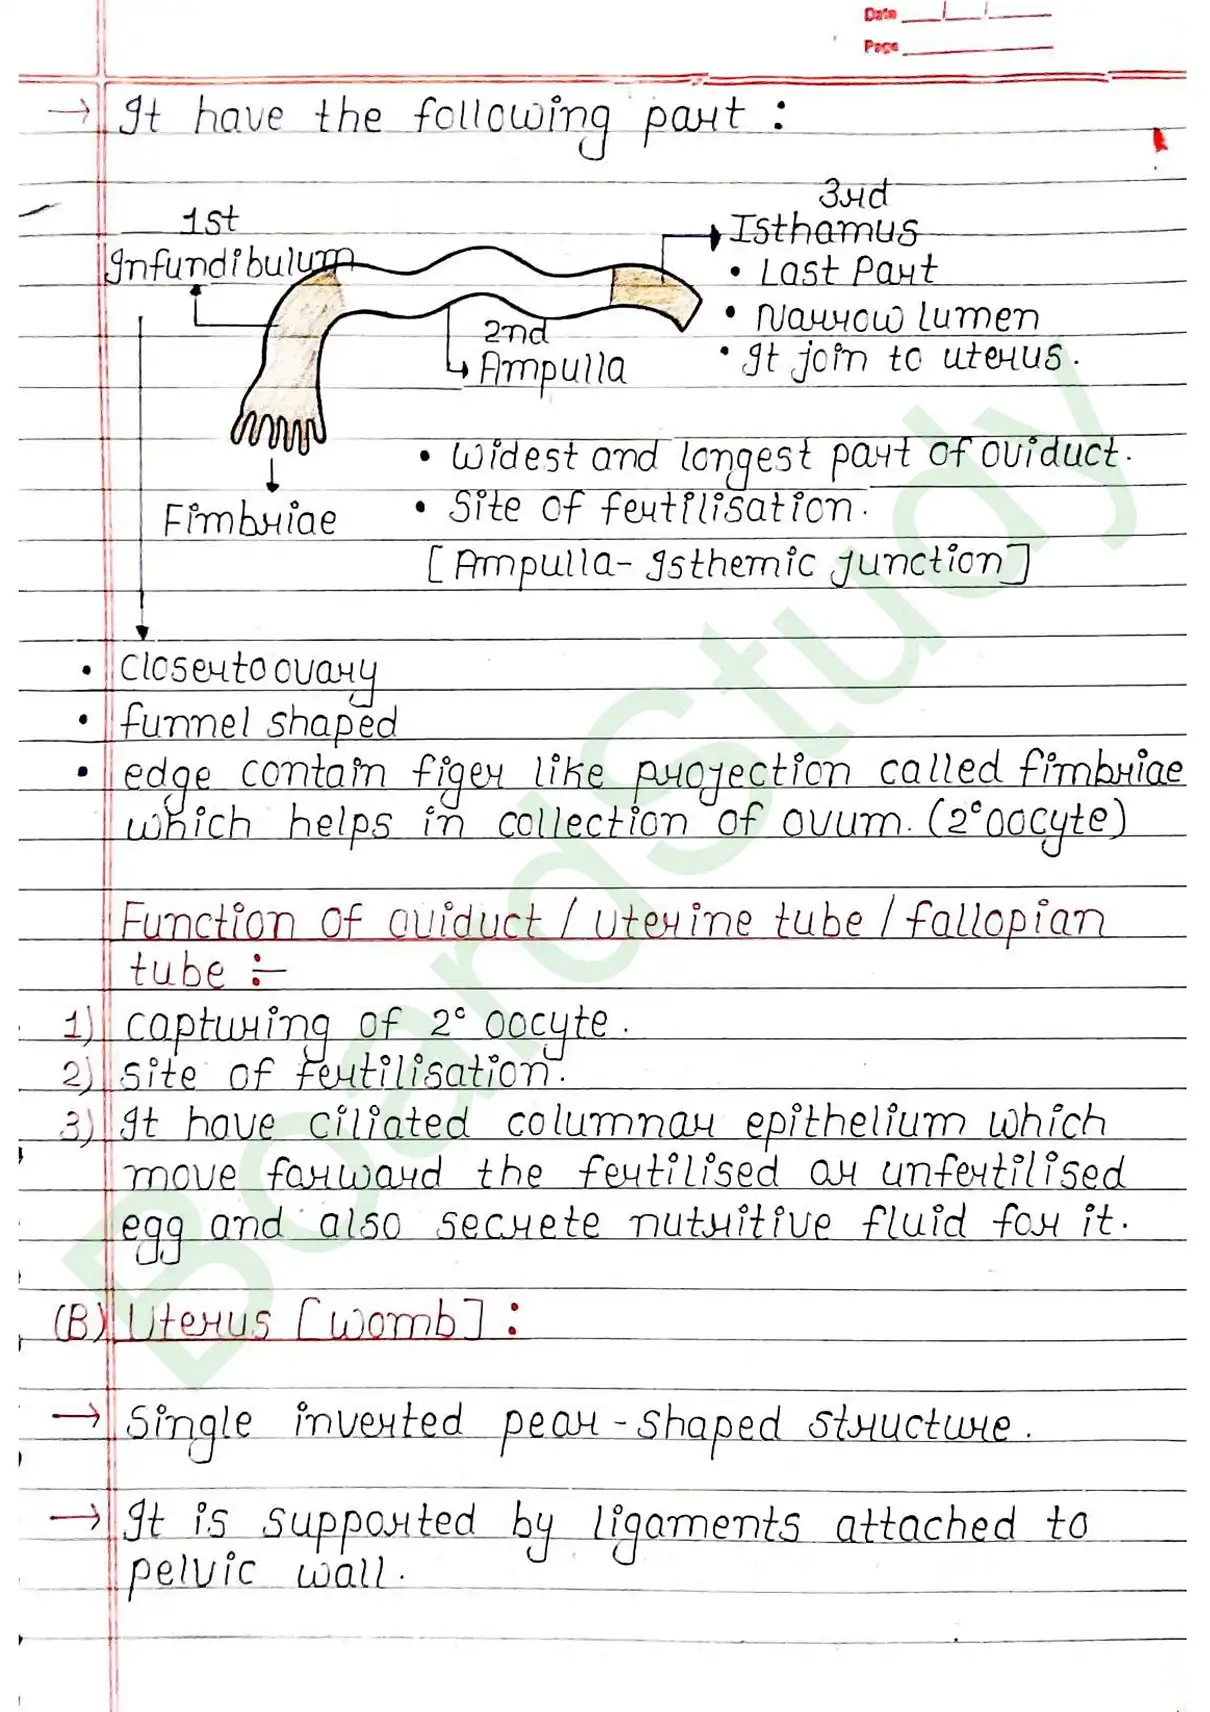 Date
Page
→ It have the following part :
1st
Infundibulum
3rd
Isthamus
• Last Part
• Narrow lumen
• It join to uterus.
2nd
Ampulla
Fimbriae
• widest and longest part of oviduct.
• Site of fertilisation.
[Ampulla- Isthemic junction]
• closer to ovary
• funnel shaped
• edge contain figer like projection called fimbriae
which helps in collection of ovum. (2° oocyte)
Function of oviduct / uterine tube / fallopian
tube :-
1) capturing of 2° oocyte.
2) site of fertilisation.
3) It have ciliated columnar epithelium which
move forward the fertilised or unfertilised
egg and also secrete nutritive fluid for it.
(B) Uterus [womb] :
→ Single inverted pear-shaped structure.
→ It is supported by ligaments attached to
pelvic wall.
BoardStudy